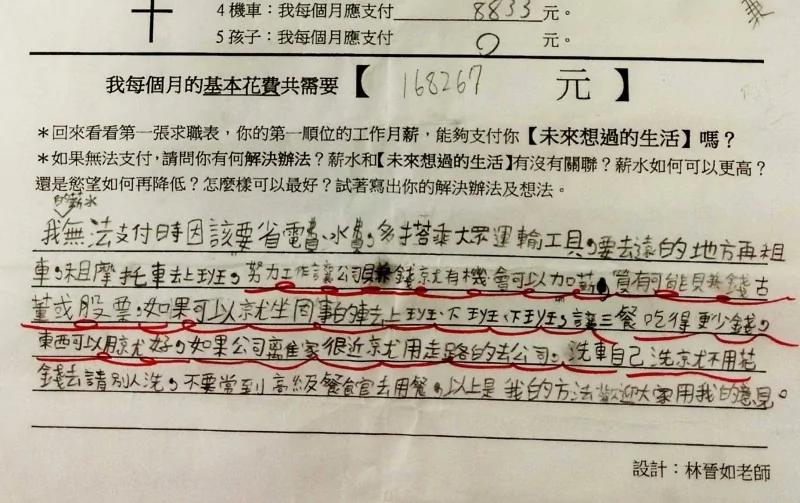 4 機車：我每個月應支付 8833 元。
5 孩子：我每個月應支付 0 元。
我每個月的基本花費共需要【 168267 元 】
＊回來看看第一張求職表，你的第一順位的工作月薪，能夠支付你【未來想過的生活】嗎？
＊如果無法支付，請問你有何解決辦法？薪水和【未來想過的生活】有沒有關聯？薪水如何可以更高？
還是慾望如何再降低？怎麼樣可以最好？試著寫出你的解決辦法及想法。
的薪水
我無法支付時因該要省電費、水費，多搭乘大眾運輸工具，要去遠的地方再租
車，租摩托車去上班，努力工作讓公司賺錢就有機會可以加薪，買有可能賺錢古
董或股票，如果可以就坐同事的車去上班、下班，讓三餐吃得更少錢，
東西可以用就好，如果公司離家很近就用走路的去公司，洗車自己洗就不用花
錢去請別人洗，不要常到高級餐館去用餐，以上是我的方法歡迎大家用我的意見。
設計：林晉如老師